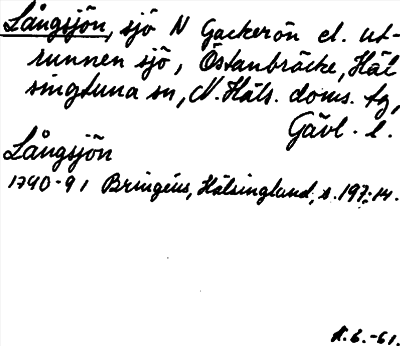 Långsjön, sjö N Gackerön el. ut-
runnen sjö, Östanbräcke, Häl
singtuna sn, N. Häls. doms. tg,
Gävl. l.
Långsjön
1790-91 Bringéus, Hälsingland, s. 197:14.
A.E.-61.